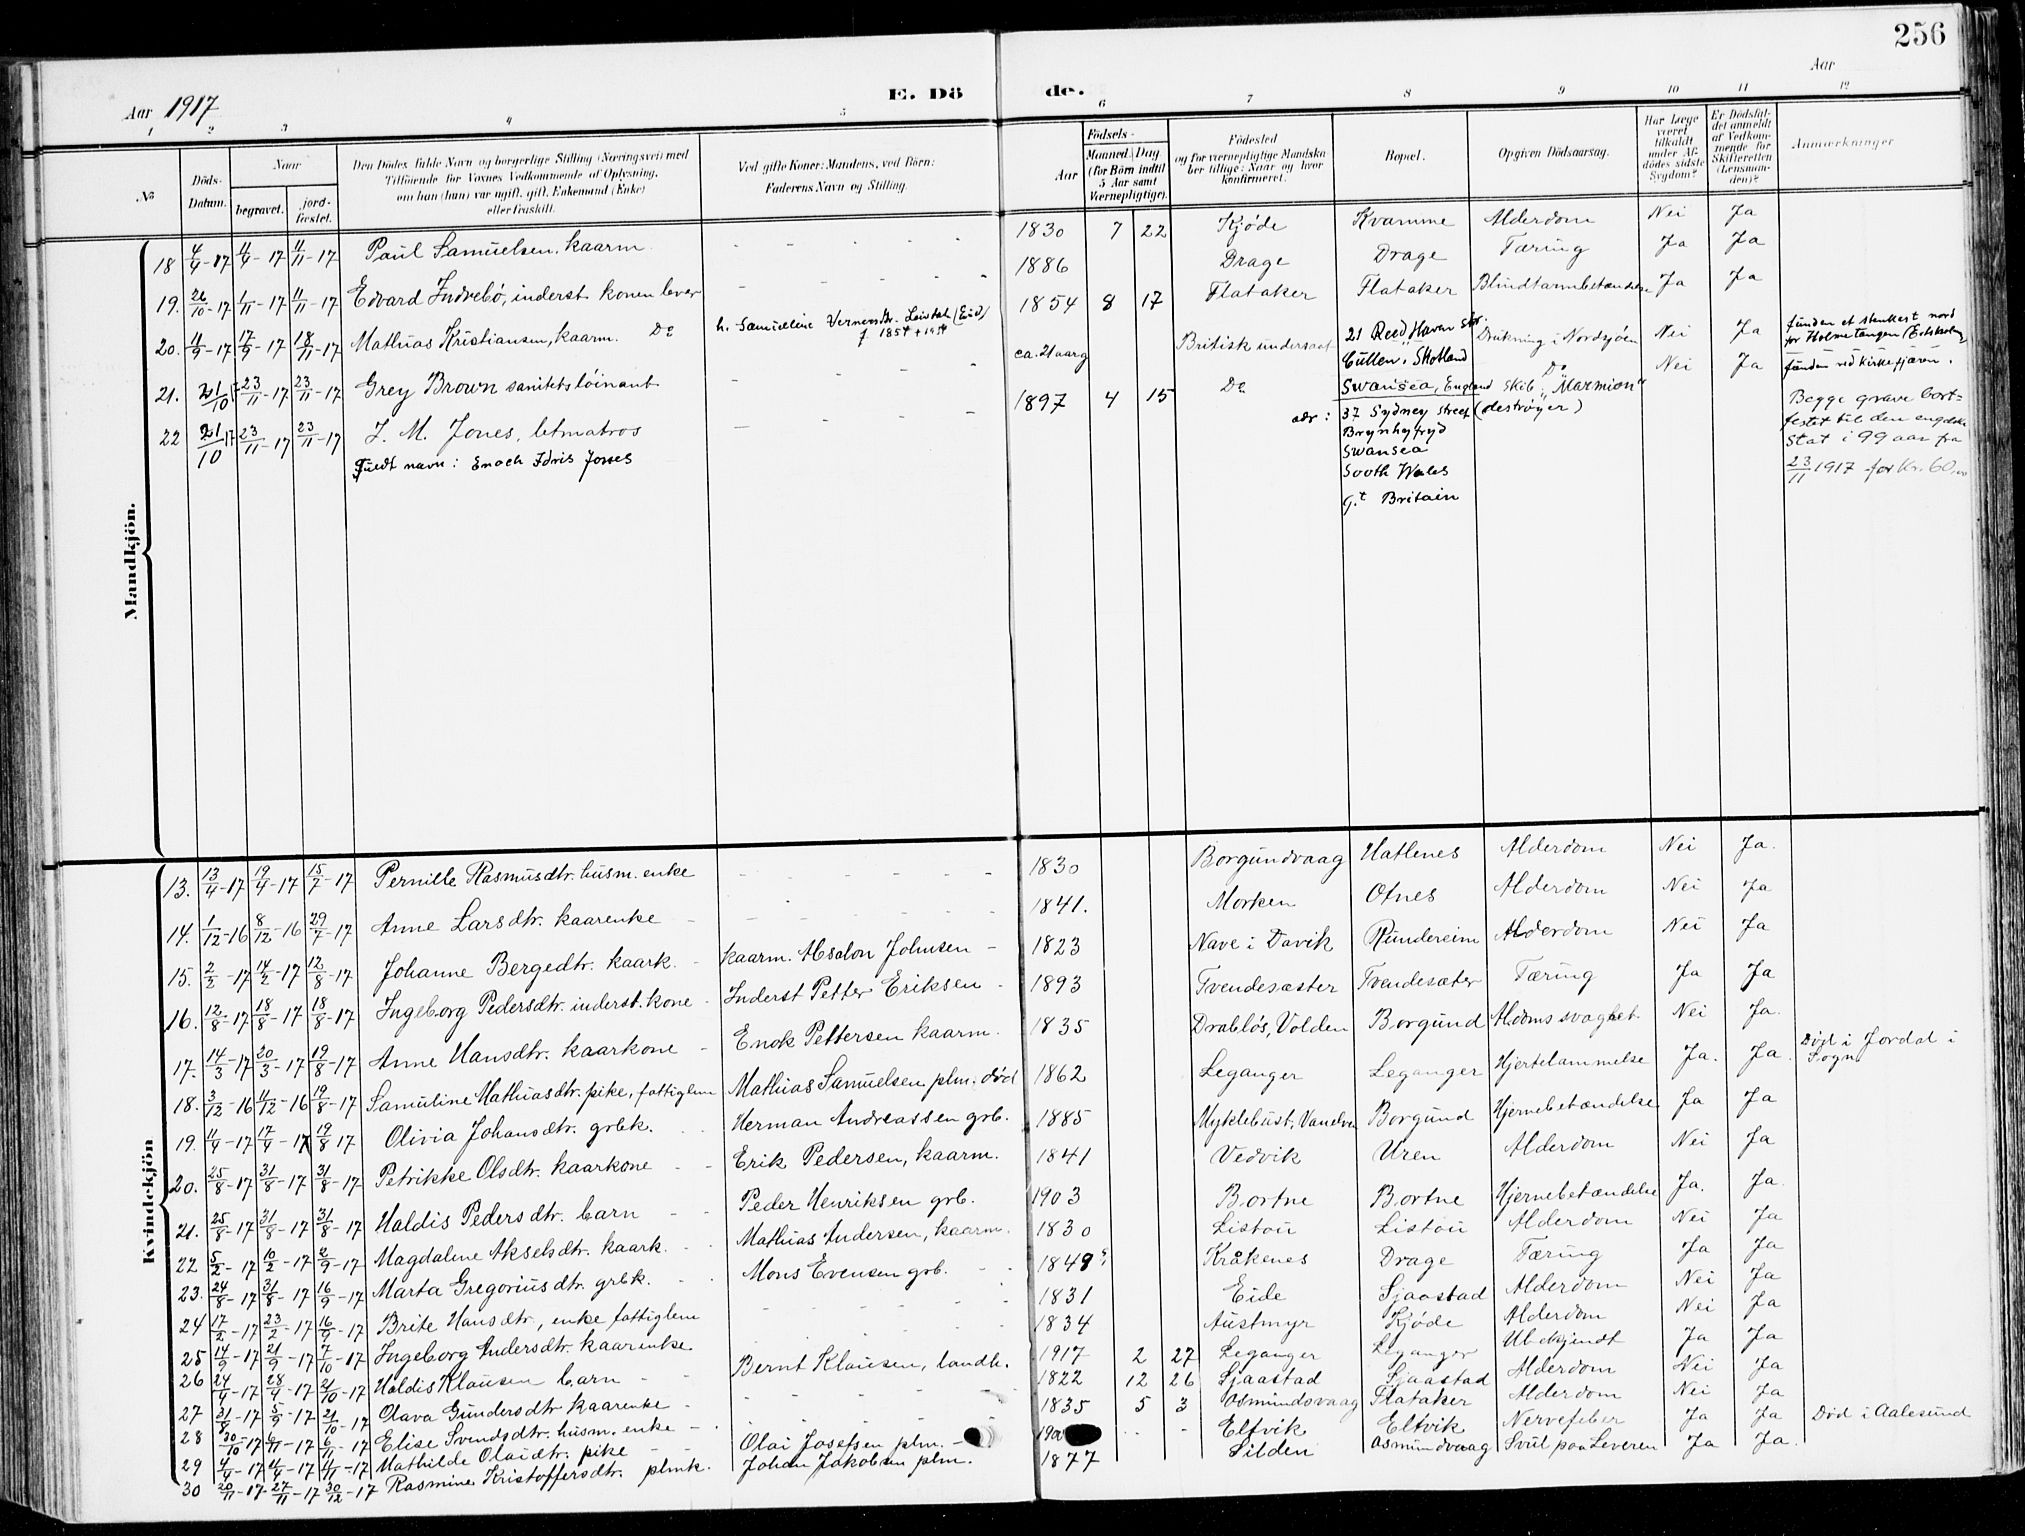 256
Aar 1917
E. Dö
de.
Aar
1 2 3 4 5 6 7 8 9 10 11 12
№
Döds-Datum.
Naar
begravet.
jord-fæstet.
Den Dödes fulde Navn og borgerlige Stilling (Næringsvei) med
Tilföiende for Voxnes Vedkommende af Oplysning,
om han (hun) var ugift, gift, Enkemand (Enke)
eller fraskilt.
Ved gifte Koner: Mandens, ved Börn:
Faderens Navn og Stilling.
Födsels-
Aar
Maaned. Dag
(for Börn indtil
5 Aar samt
Værnepligtige).
Födested
og for værnepligtige Mandska-
ber tillige: Naar og hvor
konfirmeret.
Bopæl.
Opgiven Dödsaarsag.
Har Læge
været
tilkaldt
under Af-
dödes sidste
Sygdom?
Er Dödsfal-
det anmeldt
af Vedkom-
mende for
Skifteretten
(Lensman-
den)?
Anmærkninger
Mandkjön.
18 4/4-17 11/4-17 11/11-17 Paul Samuelsen, kaarm. - - - - 1830 7 22 Kjøde Kvamme Alderdom Nei Ja
19. 26/10-17 1/11-17 11/11-17 Edvard Indrebø, inderst konen lever - - - - 1886 Drage Drage Tæring Ja Ja
20. 11/9-17 17/9-17 18/11-17 Mathias Kristiansen, kaarm. Do h. Samueline Vernersdtr. Leivdal (Eid) 1854 8 17 Flataker Flataker Blindtarmbetændelse Ja Ja
f 1854 + 1954
21. 21/10 17 23/11-17 23/11-17 Grey Brown sanitetsløinant - - - - ca. 21 aarg Britisk undersaat 21 Reed Haven Str. Drukning i Nordsjøen Nei Ja funden et stenkast nord
Cullen, Skotland for Holmetangen
22 21/10 17 23/11-17 23/11-17 J. M. Jones, letmatros - - - 1897 4 15 Do Swansea, England Do Nei Ja funden ved Kirkefjæren.
Skib: "Marmion"
(destrøyer)
Fuldt navn: Enoch Idris Jones
adr: 37 Sydney street
Brynhyfryd
Swansea
South Wales
G.t Britain
Begge grave bort-
festet til den engelske
stat i 99 aar fra
23/11 1917 for Kr. 60,00
Kvindekjön
13. 13/4-17 19/4-17 15/7-17 Pernille Rasmusdtr. husm. enke - - - - - 1830 Borgundvaag Hatlenes Alderdom Nei Ja.
14. 1/12-16 8/12-16 29/7-17 Anne Larsdtr. kaarenke - - - - - - 1841. Morken Otnes Alderdom Nei Ja
15. 2/2-17 14/2-17 12/8-17 Johanne Bergedtr. kaark. - kaarm. Absalon Johnsen - 1823 Nave i Davik Rundereim Alderdom Nei Ja
16. 12/8-17 18/8-17 18/8-17 Ingeborg Pedersdtr. inderst. kone - Inderst Petter Eriksen - 1893 Tvendesæter Tvendesæter Tæring Ja Ja
17. 14/3-17 20/3-17 19/8-17 Anne Hansdtr. kaarkone - Enok Pettersen kaarm. 1835 Drabløs, Volden Borgund Ald.doms svaghet. Nei Ja.
18. 3/12-16 11/12-16 19/8-17 Samuline Mathiasdtr. pike, fattiglem Mathias Samuelsen plm. død 1862 Leganger Leganger Hjertelammelse Ja. Ja. Død i Jordal i
Sogn
19. 11/4-17 17/4-17 19/8 17 Olivia Johansdtr. grbk. - - Herman Andreassen grb. 1885 Myklebust, Vanelven Borgund Hjernebetændelse Ja Ja
20. 25/8-17 31/8-17 31/8-17 Petrikke Olsdtr. kaarkone - - Erik Pedersen, kaarm. 1841 Vedvik Uren Alderdom Nei Ja
21. 25/8-17 31/8-17 31/8-17 Haldis Pedersdtr. barn - - Peder Henriksen grb. 1903 Bortne Bortne Hjernebetændelse Ja. Ja.
22 5/2-17 10/2-17 2/9-17 Magdaline Akselsdtr. kaark. - - Mathias Andersen, kaarm. 1830 Listou Listou Alderdom Nei Ja
23. 24/8-17 31/8-17 16/9-17 Marta Gregoriusdtr. grbk. - - Mons Evensen grb. - - 1849 Kråkenes Drage Tæring Ja Ja
24 17/2-17 23/2-17 16/9-17 Brite Hansdtr., enke fattiglem - - - - - 1831 Eide Sjaastad Alderdom Nei Ja
25 14/9-17 21/9-17 7/10-17 Ingeborg Andersdtr. kaarenke - - - - - 1834 Austmyr Kjøde Alderdom Nei Ja
26 24/4-17 28/4-17 21/10-17 Haldis Klausen barn - - Bernt Klausen, landh. 1917 2 27 Leganger Leganger Ubekjendt Ja Ja
27 31/8-17 5/9-17 21/10-17 Olava Gundersdtr kaarenke - - - - - 1822 12 26 Sjaastad Sjaastad Alderdom Nei Ja
28 30/10-17 6/11-17 6/11-17 Elise Svendsdtr. husm. enke - - - - - 1835 5 3 Osmundsvaag Flataker Alderdom Nei Ja
29 4/4-17 11/4-17 4/11-17 Mathilde Olaidtr. pike - - Olai Josefsen plm. - Elfvik Elfvik Nervefeber Ja Ja Død i Aalesund
30 20/11-17 27/11-17 30/12-17 Rasmine Kristoffersdtr. plmk. Johan Jakobsen plm. 1877 Silden Osmundvaag Svul paa Leveren Ja Ja.